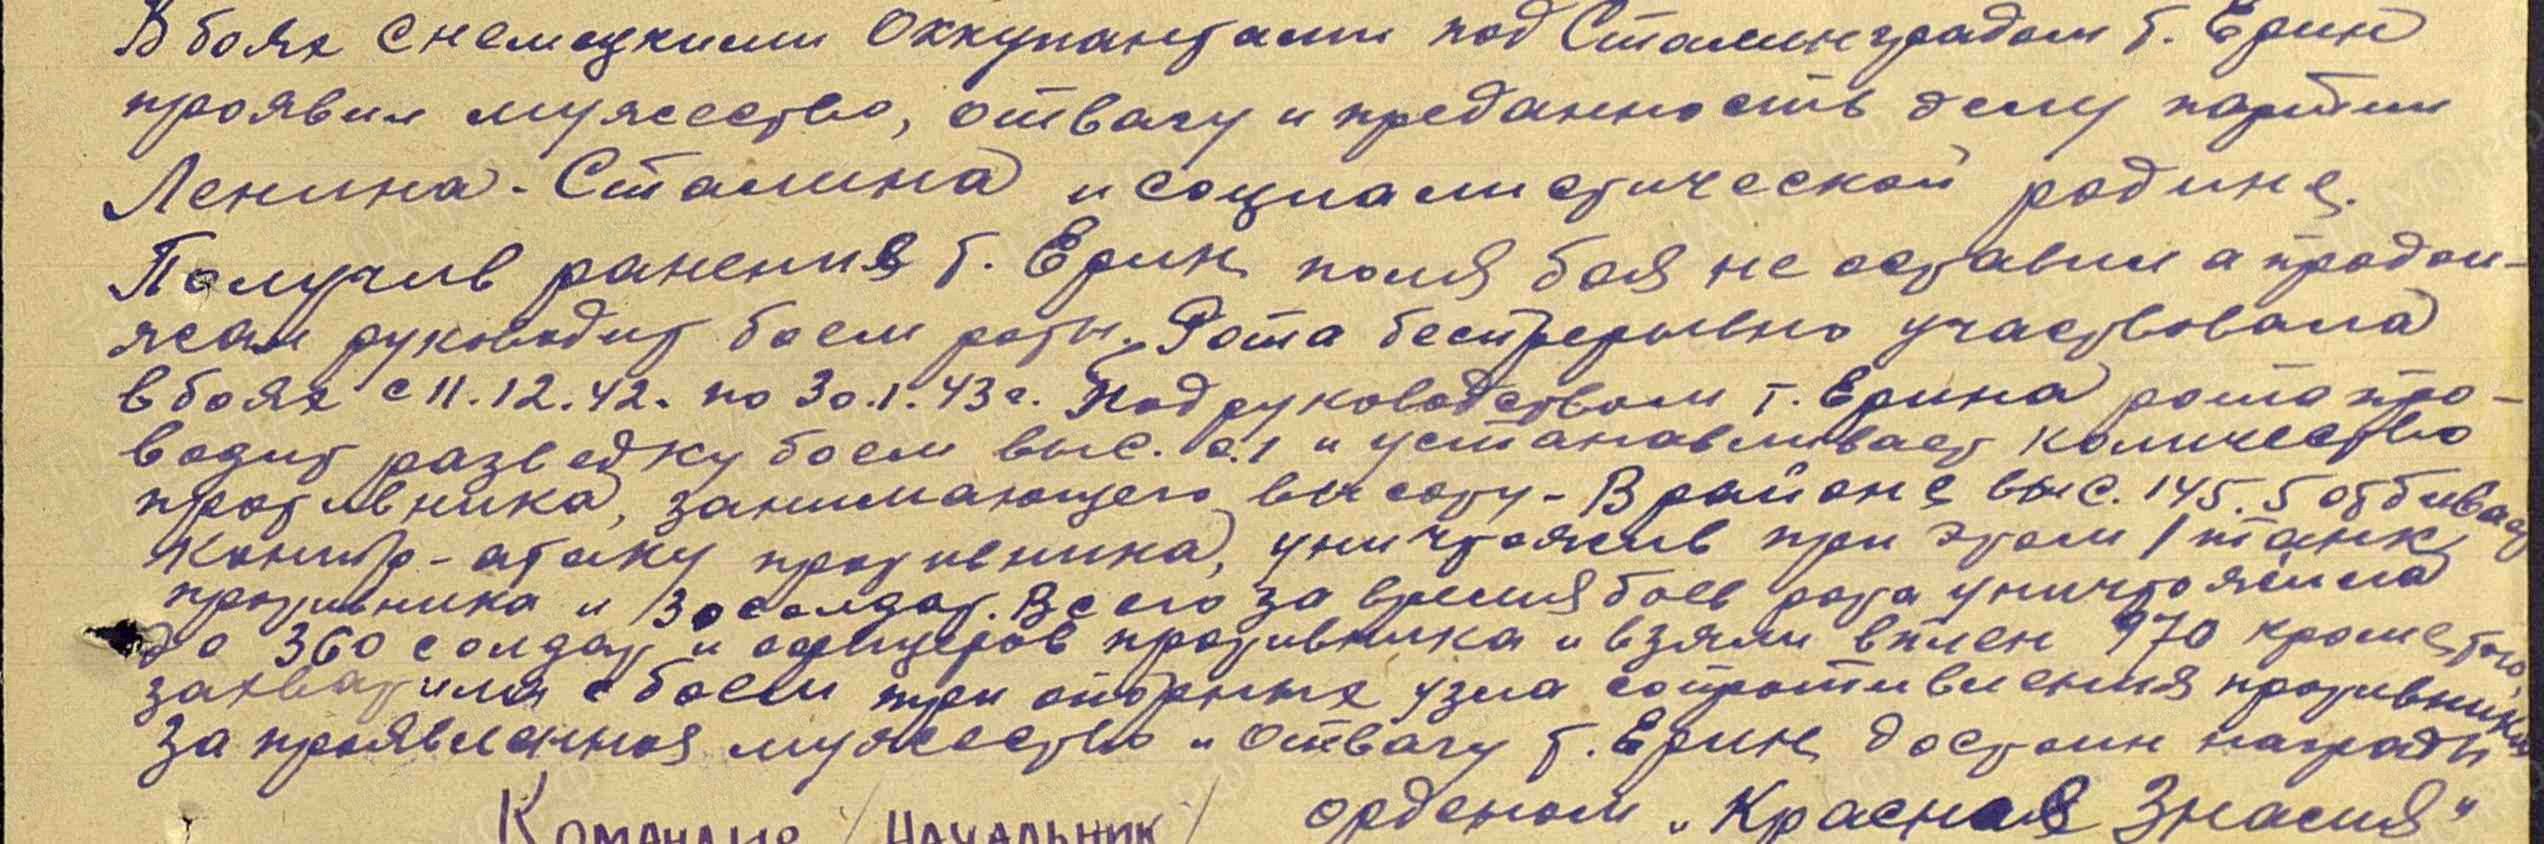 В боях с немецкими оккупантами под Сталинградом т. Ерин
проявил мужество, отвагу и преданность делу партии
Ленина-Сталина и социалистической родине.
Получив ранения т. Ерин поля боя не оставил а продол-
жал руководит боем роты. Рота беспрерывно участвовала
в боях с 11.12.42. по 30.1.43г. Под руководством т. Ерина рота про-
водит разведку боем выс. и устанавливает количество
противника, занимающего высоту - В районе выс. 145.5 отбивает
контр-атаку противника, уничтожив при этом 1 танк
противника и 30 солдат. Всего за время боев рота уничтожила
до 360 солдат и офицеров противника и взяли в плен 970 кроме того,
захватила с боем три опорных узла сопротивления противника
За проявленноя мужество и отвагу т. Ерин достоин награды
орденом „Красная Знамя"
Командир /начальник/